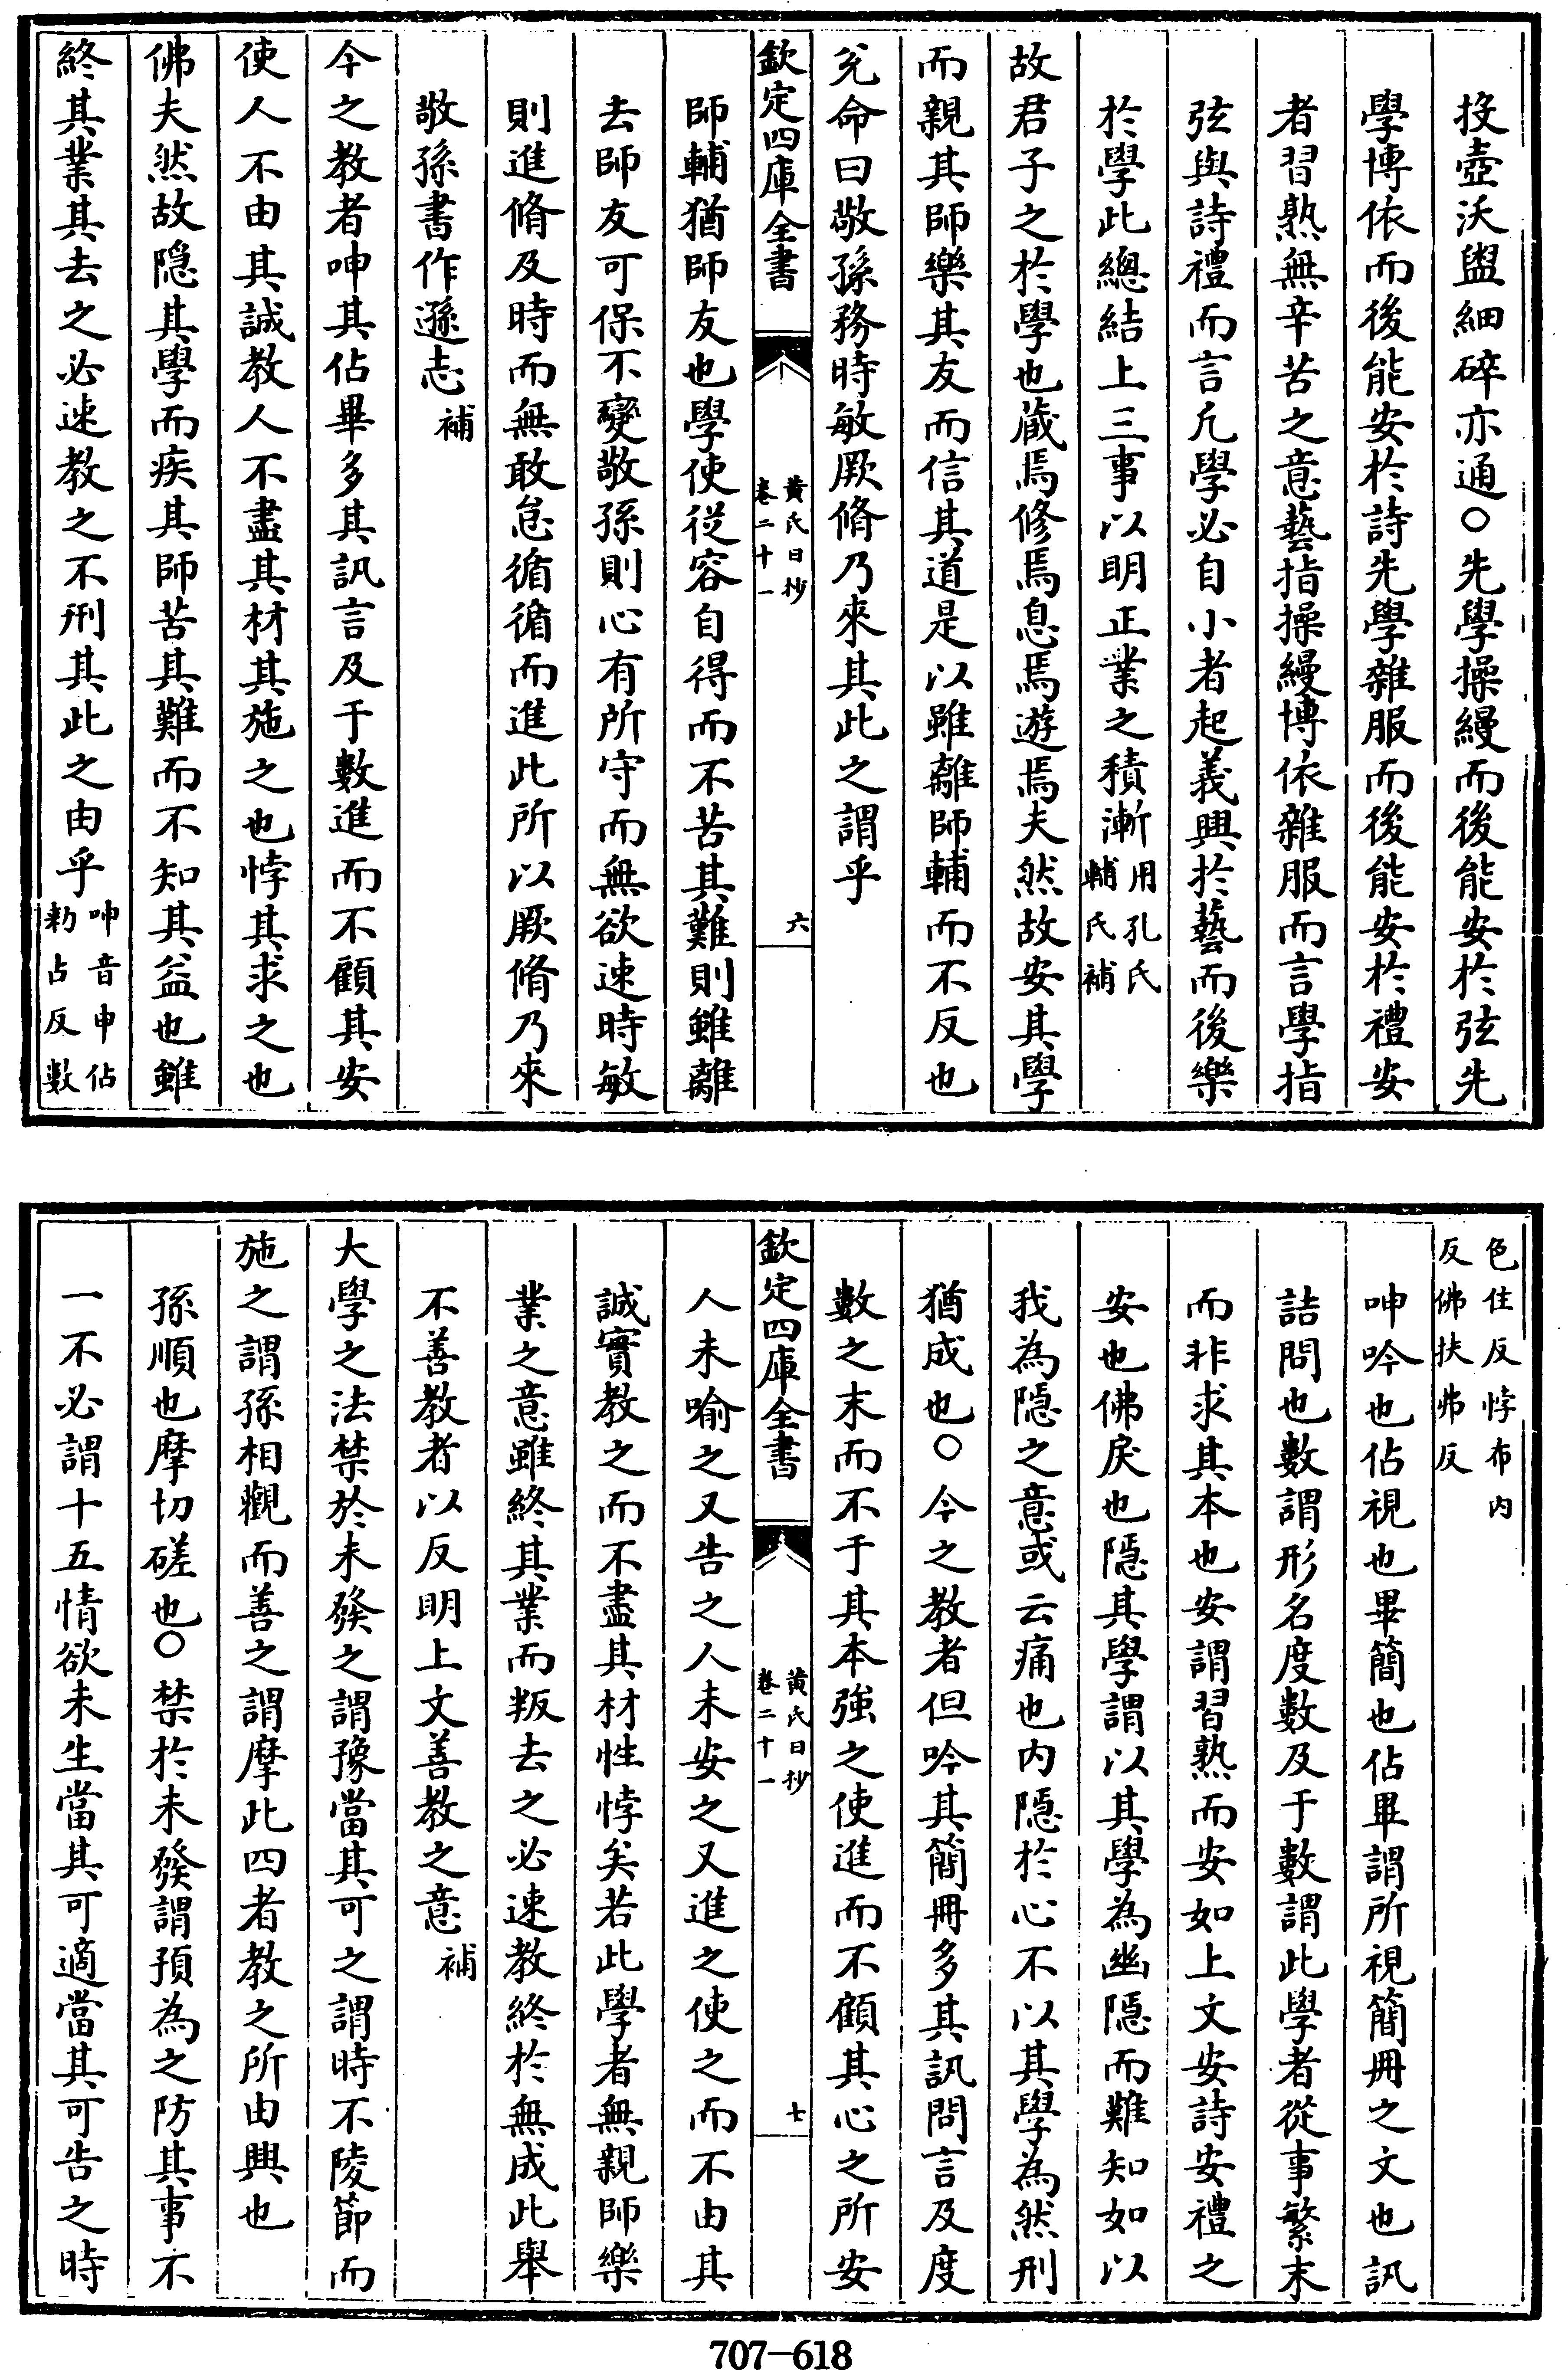 投壺沃盥細碎亦通〇先學操縵而後能安於弦先
學博依而後能安於詩先學雜服而後能安於禮安
者習熟無辛苦之意藝指操縵博依雜服而言學指
弦與詩禮而言凢學必自小者起義興於藝而後樂
於學此總結上三事以明正業之積漸用孔氏輔氏補
故君子之於學也蔵焉修焉息焉遊焉夫然故安其學
而親其師樂其友而信其道是以雖離師輔而不反也
兊命曰敬孫務時敏厥脩乃來其此之謂乎
欽定四庫全書
黄氏日抄
卷二十一
六
師輔猶師友也學使從容自得而不苦其難則雖離
去師友可保不變敬孫則心有所守而無欲速時敏
則進脩及時而無敢怠循循而進此所以厥脩乃來
敬孫書作遜志補
今之教者呻其佔畢多其訊言及于數進而不顧其安
使人不由其誠教人不盡其材其施之也悖其求之也
佛夫然故隠其學而疾其師苦其難而不知其益也雖
終其業其去之必速教之不刑其此之由乎呻音申佔勑占反數
色住反悖布内反佛扶弗反
呻吟也佔視也畢簡也佔畢謂所視簡冊之文也訊
詰問也數謂形名度數及于數謂此學者從事繁末
而非求其本也安謂習熟而安如上文安詩安禮之
安也佛戾也隠其學謂以其學為幽隠而難知如以
我為隠之意或云痛也内隠於心不以其學為然刑
猶成也〇今之教者但吟其簡冊多其訊問言及度
數之末而不于其本強之使進而不顧其心之所安
欽定四庫全書
黄氏日抄
卷二十一
七
人未喻之又告之人未安之又進之使之而不由其
誠實教之而不盡其材性悖矣若此學者無親師樂
業之意雖終其業而叛去之必速教終於無成此舉
不善教者以反明上文善教之意補
大學之法禁於未發之謂豫當其可之謂時不陵節而
施之謂孫相觀而善之謂摩此四者教之所由興也
孫順也摩切磋也〇禁於未發謂預為之防其事不
一不必謂十五情欲未生當其可適當其可告之時
707—618